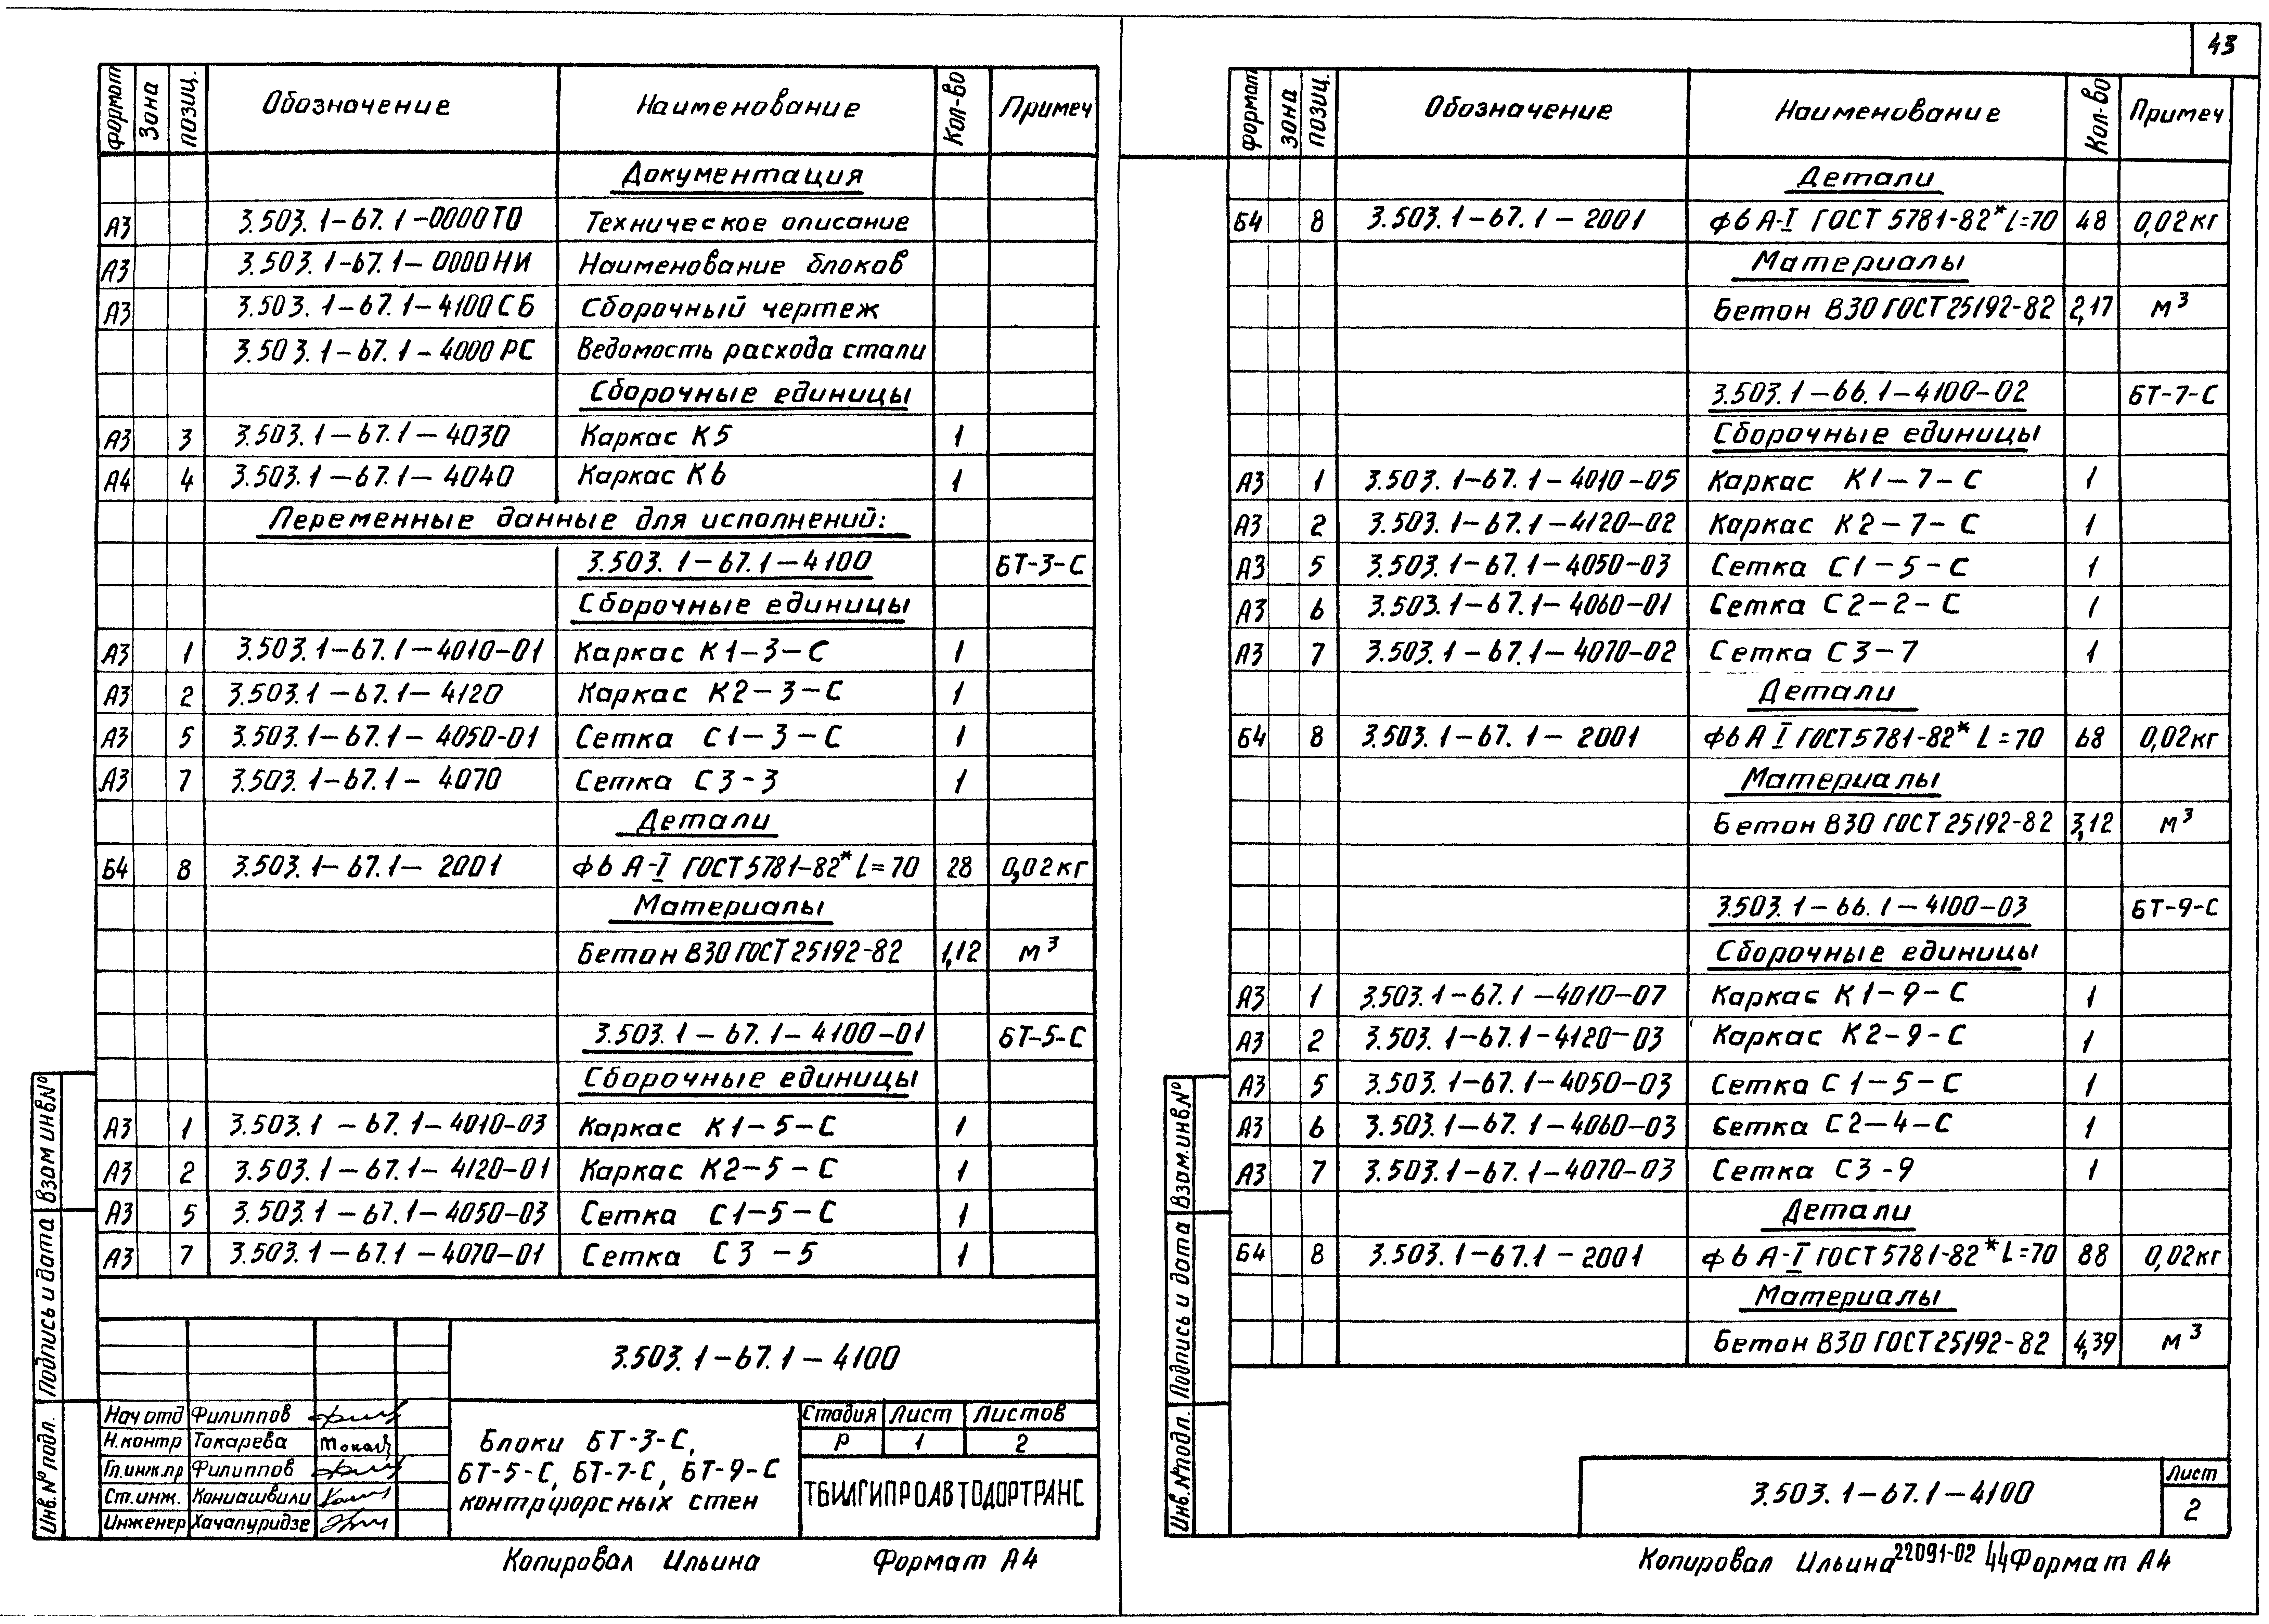 43
формат Зона позиц. Обозначение Наименование Кол-во Примеч
Документация
А3 3.503.1-67.1-0000ТО Техническое описание
А3 3.503.1-67.1-0000НИ Наименование блоков
А3 3.503.1-67.1-4100СБ Сборочный чертеж
3.503.1-67.1-4000РС Ведомость расхода стали
Сборочные единицы
А3 3 3.503.1-67.1-4030 Каркас К5 1
А4 4 3.503.1-67.1-4040 Каркас К6 1
Переменные данные для исполнений:
3.503.1-67.1-4100 БТ-3-С
Сборочные единицы
А3 1 3.503.1-67.1-4010-01 Каркас К1-3-С 1
А3 2 3.503.1-67.1-4120 Каркас К2-3-С 1
А3 5 3.503.1-67.1-4050-01 Сетка С1-3-С 1
А3 7 3.503.1-67.1-4070 Сетка С3-3 1
Детали
Б4 8 3.503.1-67.1-2001 ф6 А-I ГОСТ 5781-82* l=70 28 0,02кг
Материалы
Бетон В30 ГОСТ 25192-82 1,12 м³
3.503.1-67.1-4100-01 БТ-5-С
Сборочные единицы
А3 1 3.503.1-67.1-4010-03 Каркас К1-5-С 1
А3 2 3.503.1-67.1-4120-01 Каркас К2-5-С 1
А3 5 3.503.1-67.1-4050-03 Сетка С1-5-С 1
А3 7 3.503.1-67.1-4070-01 Сетка С3-5 1
3.503.1-67.1-4100
Нач отд Филиппов
Н.контр Токарева
Гл.инж.пр Филиппов
Ст.инж. Кониашвили
Инженер Хачапуридзе
Блоки БТ-3-С,
БТ-5-С, БТ-7-С, БТ-9-С
контрфорсных стен
Стадия Лист Листов
Р 1 2
ТБИЛГИПРОАВТОДОРТРАНС
Инв.№подл. Подпись и дата Взам инв№
Копировал Ильина Формат А4
формат зона позиц. Обозначение Наименование Кол-во Примеч
Детали
Б4 8 3.503.1-67.1-2001 ф6 А-I ГОСТ 5781-82* l=70 48 0,02кг
Материалы
Бетон В30 ГОСТ 25192-82 2,17 м³
3.503.1-66.1-4100-02 БТ-7-С
Сборочные единицы
А3 1 3.503.1-67.1-4010-05 Каркас К1-7-С 1
А3 2 3.503.1-67.1-4120-02 Каркас К2-7-С 1
А3 5 3.503.1-67.1-4050-03 Сетка С1-5-С 1
А3 6 3.503.1-67.1-4060-01 Сетка С2-2-С 1
А3 7 3.503.1-67.1-4070-02 Сетка С3-7 1
Детали
Б4 8 3.503.1-67.1-2001 ф6 А I ГОСТ 5781-82* l=70 68 0,02кг
Материалы
Бетон В30 ГОСТ 25192-82 3,12 м³
3.503.1-66.1-4100-03 БТ-9-С
Сборочные единицы
А3 1 3.503.1-67.1-4010-07 Каркас К1-9-С 1
А3 2 3.503.1-67.1-4120-03 Каркас К2-9-С 1
А3 5 3.503.1-67.1-4050-03 Сетка С1-5-С 1
А3 6 3.503.1-67.1-4060-03 Сетка С2-4-С 1
А3 7 3.503.1-67.1-4070-03 Сетка С3-9 1
Детали
Б4 8 3.503.1-67.1-2001 ф6 А-I ГОСТ 5781-82* l=70 88 0,02кг
Материалы
Бетон В30 ГОСТ 25192-82 4,39 м³
Инв.№подл. Подпись и дата Взам.инв.№
3.503.1-67.1-4100
Лист
2
Копировал Ильина 22091-02 44 Формат А4